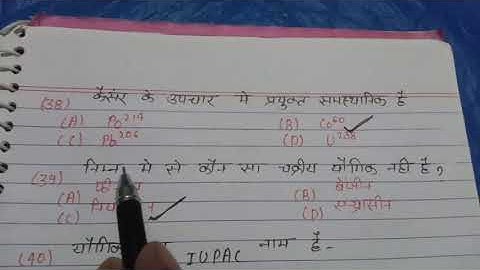 (38) कैंसर के उपचार मे प्रयुक्त समस्थानिक है
(A) Po²¹⁴ (B) Co⁶⁰ ✓
(C) Pb²⁰⁶ (D) U²⁰⁸
(39) निम्न मे से कौन सा चक्रीय यौगिक नही है?
(A) (B) बेंजीन
(C) (D) एन्थ्रासीन
(40) यौगिक IUPAC नाम है-